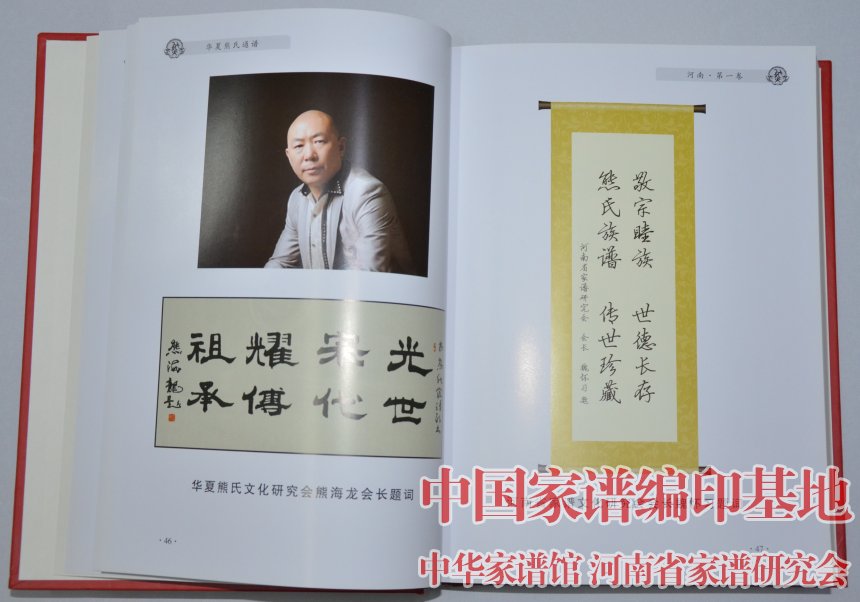 华夏熊氏通谱
光宗耀祖
世代傳承
熊海龍
华夏熊氏文化研究会熊海龙会长题词
·46·
河南·第一卷
敬宗睦族 世德长存
熊氏族谱 传世珍藏
河南省家谱研究会 会长 魏怀习 题
·47·
中国家谱编印基地
中华家谱馆 河南省家谱研究会